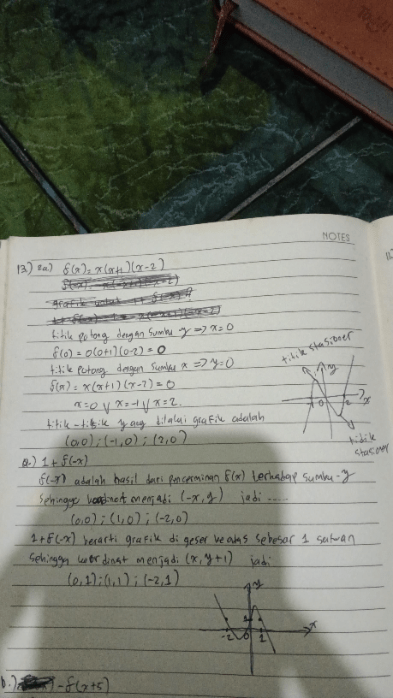 NOTES
13.) 2a.) f(x) = x(x+1)(x-2)
titik potong dengan sumbu y => x=0
f(0) = 0(0+1)(0-2) = 0
titik potong dengan sumbu x => y=0
f(x) = x(x+1)(x-2) = 0
x=0 V x=-1 V x=2
titik-titik yang dilalui grafik adalah
(0,0) ; (-1,0) ; (2,0)
titik stasioner
y
-1 0 2 x
titik stasioner
a.) 1 + f(-x)
f(-x) adalah hasil dari pencerminan f(x) terhadap sumbu-y
sehingga menjadi (-x,y) jadi .....
(0,0) ; (1,0) ; (-2,0)
1+f(-x) berarti grafik di geser keatas sebesar 1 satuan
sehingga koordinat menjadi (x, y+1) jadi
(0,1) ; (1,1) ; (-2,1)
y
1
x
-2 0 1
b.) -f(x+5)